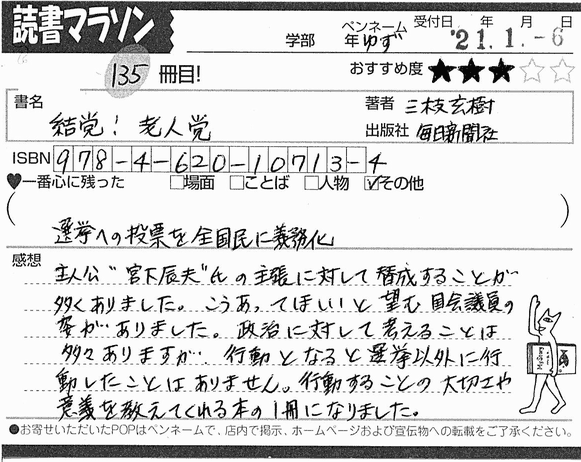 読書マラソン
学部 年 ペンネーム ゆず 受付日 年 月 日 '21.1.-6
135 冊目! おすすめ度 ★★★☆☆
書名 結党! 老人党
著者 三枝玄樹
出版社 毎日新聞社
ISBN 978-4-620-10713-4
♥一番心に残った □場面 □ことば □人物 ☑その他
選挙への投票を全国民に義務化
感想
主人公"宮下辰夫"氏の主張に対して賛成することが
多くありました。こうあってほしいと望む国会議員の
姿がありました。政治に対して考えることは
多々ありますが、行動となると選挙以外に行
動したことはありません。行動することの大切さや
意義を教えてくれる本の1冊になりました。
●お寄せいただいたPOPはペンネームで、店内で掲示、ホームページおよび宣伝物への転載をご了承ください。